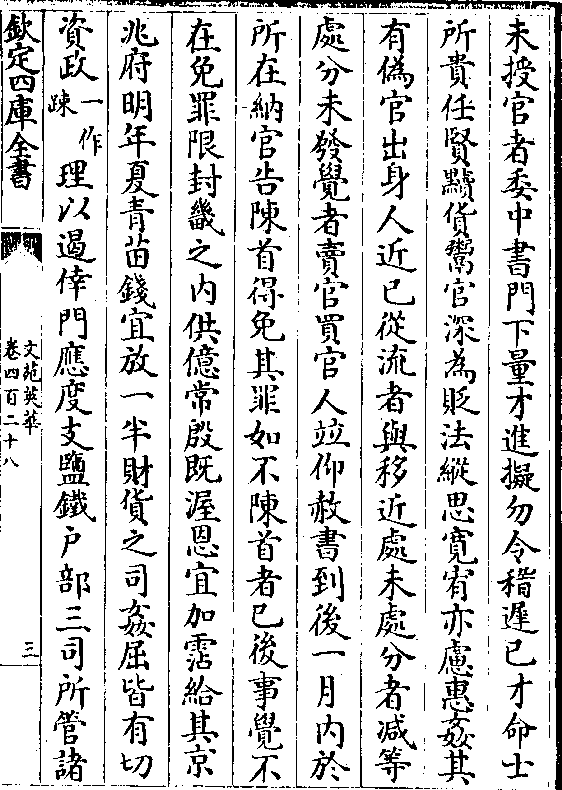 未授官者委中書門下量才進擬勿令稽遲已才命士
所貴任賢黷貨鬻官深為貶法縱思寛宥亦慮惠姦其
有偽官出身人近已從流者與移近處未處分者減等
處分未發覺者賣官買官人並仰赦書到後一月內於
所在納官告陳首得免其罪如不陳首者已後事覺不
在免罪限封畿之內供億常殷既渥恩宜加霑給其京
兆府明年夏青苗錢宜放一半財貨之司姦屈皆有切
資政一作疎理以遏倖門應度支鹽鐵户部三司所管諸
欽定四庫全書
文苑英華
卷四百二十八
三